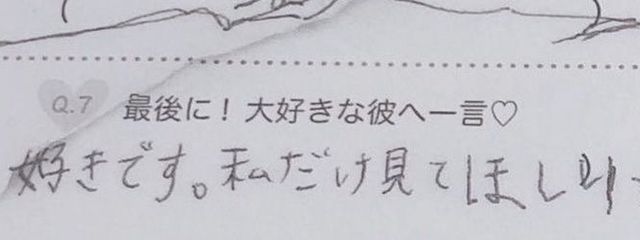 Q.7 最後に！大好きな彼へ一言♡
好きです。私だけ見てほしい